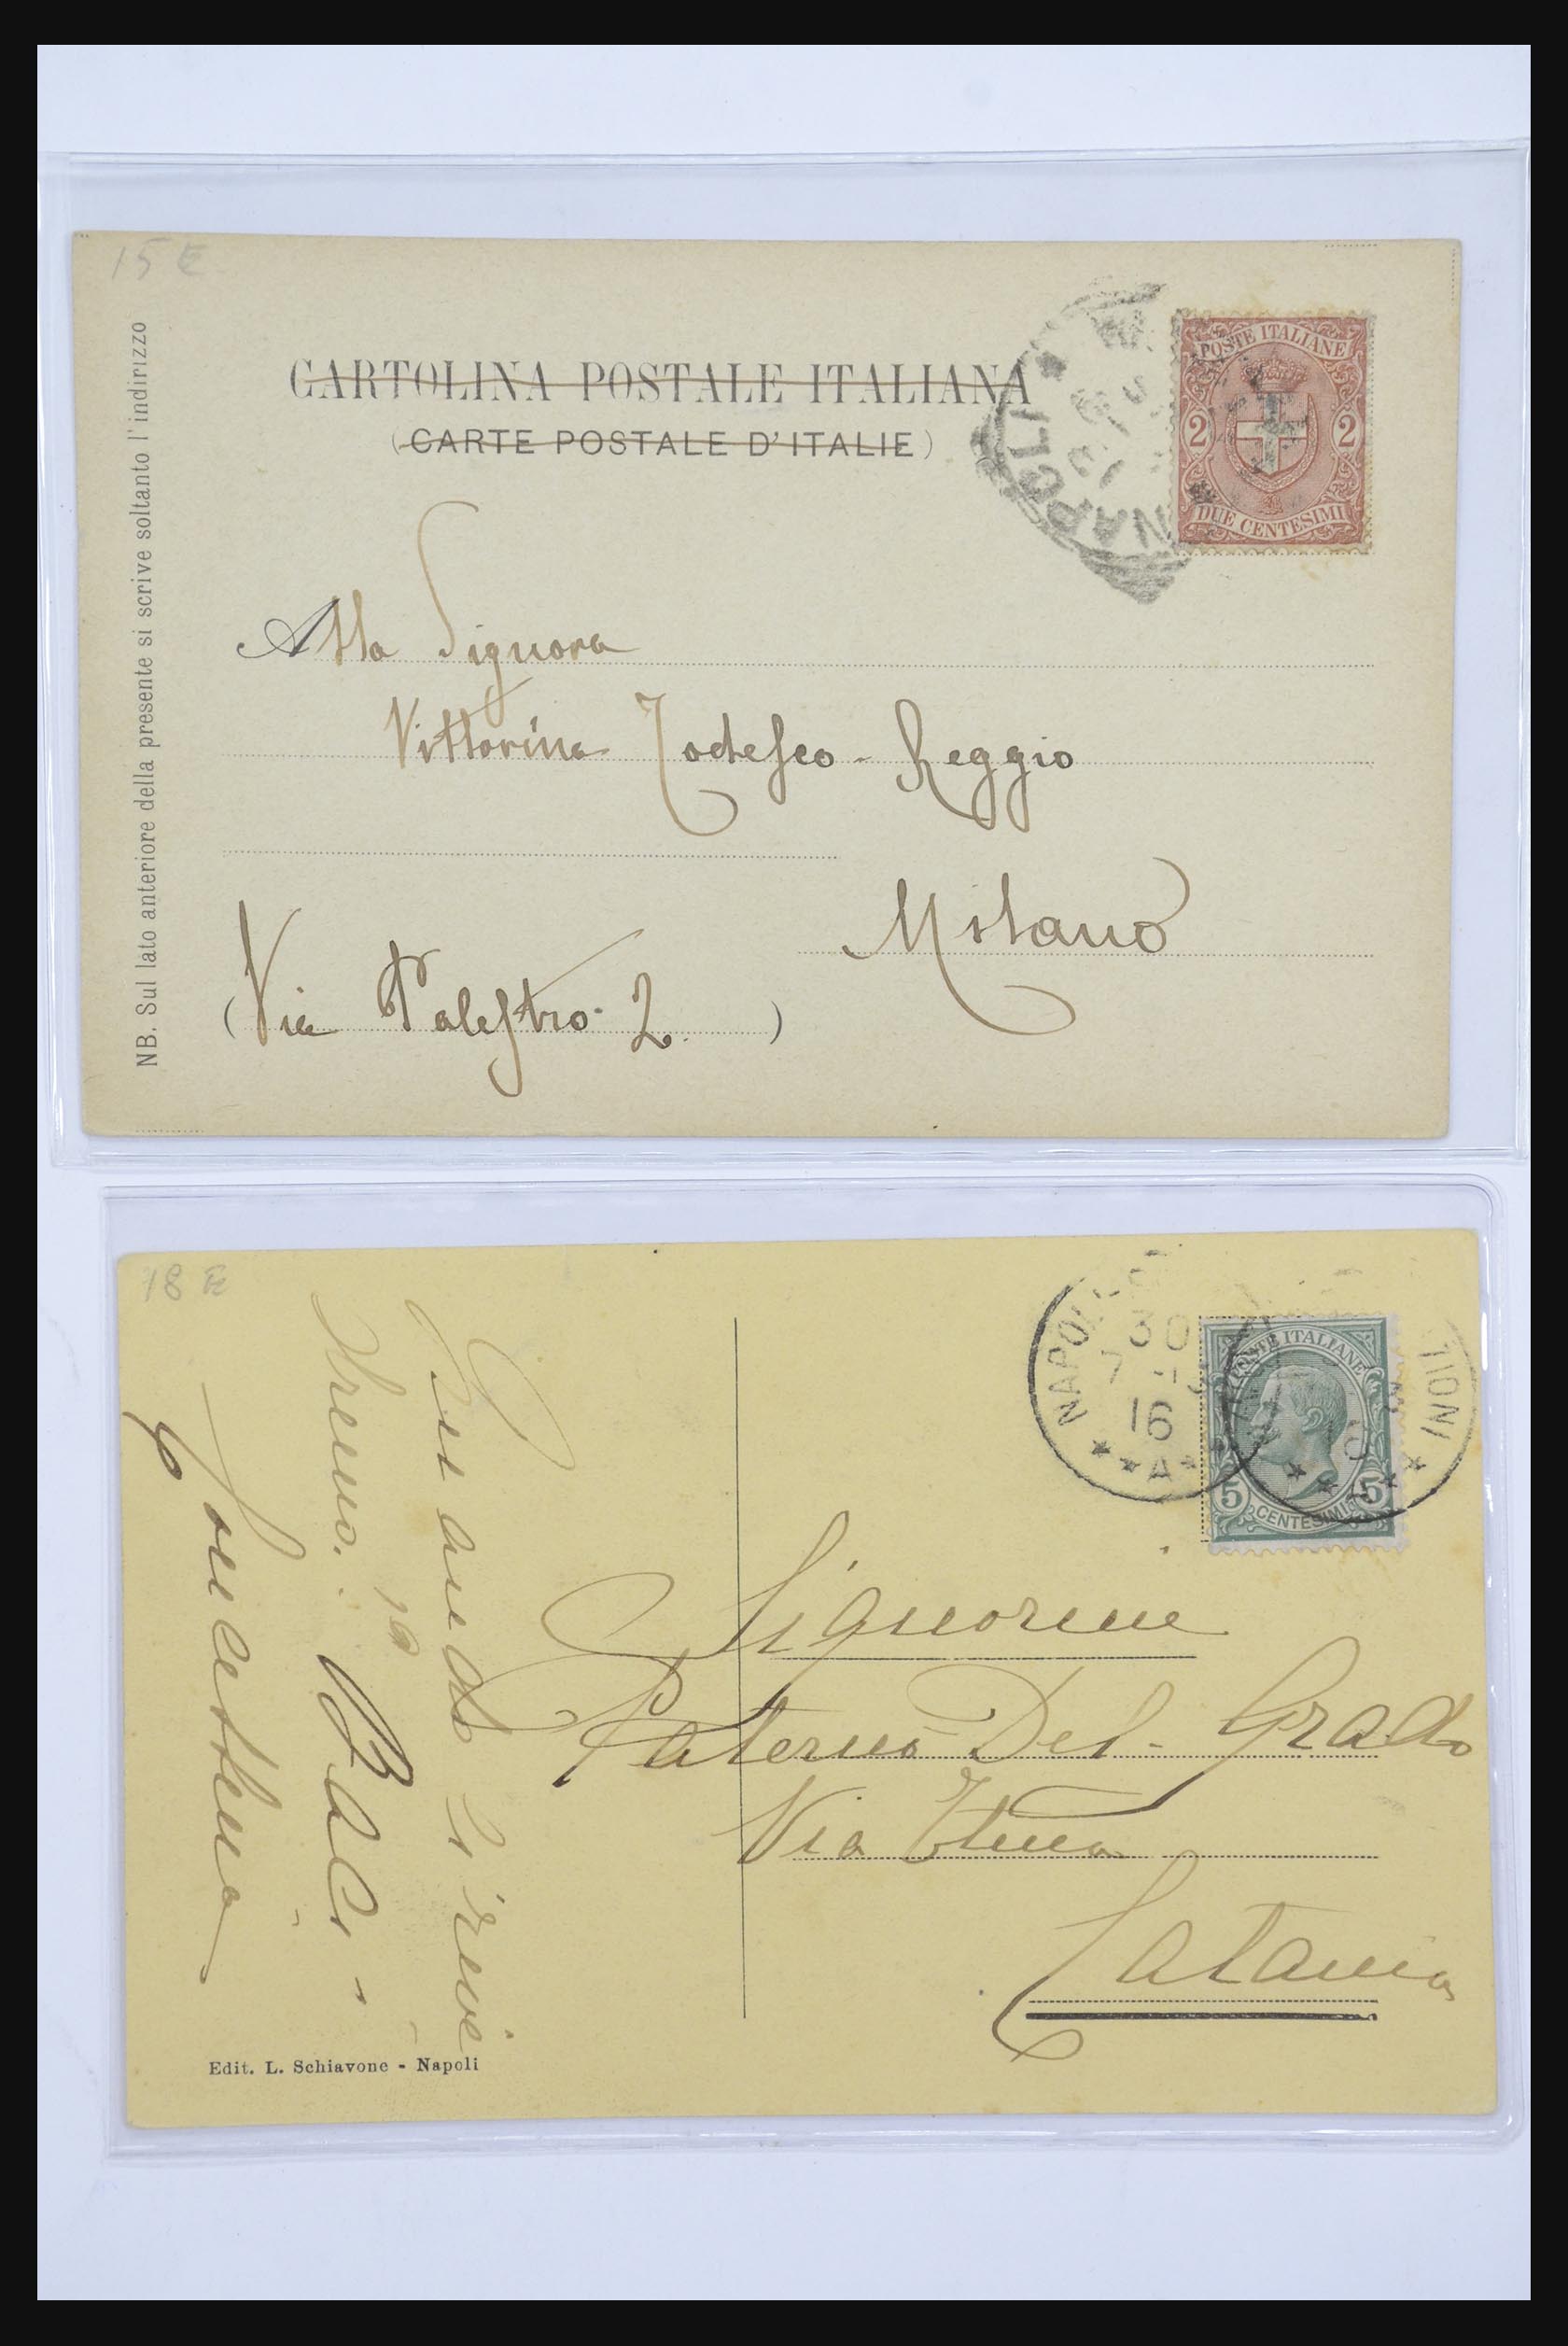 15 €
NB. Sul lato anteriore della presente si scrive soltanto l'indirizzo
CARTOLINA POSTALE ITALIANA
(CARTE POSTALE D'ITALIE)
NAPOLI
POSTE ITALIANE
2 2
DUE CENTESIMI
Alla Signora
Vittorina Todesco - Reggio
Milano
(Via Palestro 2.)
18 €
NAPOLI
30
7
16
* * A * *
POSTE ITALIANE
5 5
CENTESIMI
Signorine
Paternò Del Grado
Via Etna
Catania
Baci
Concettina
Edit. L. Schiavone - Napoli